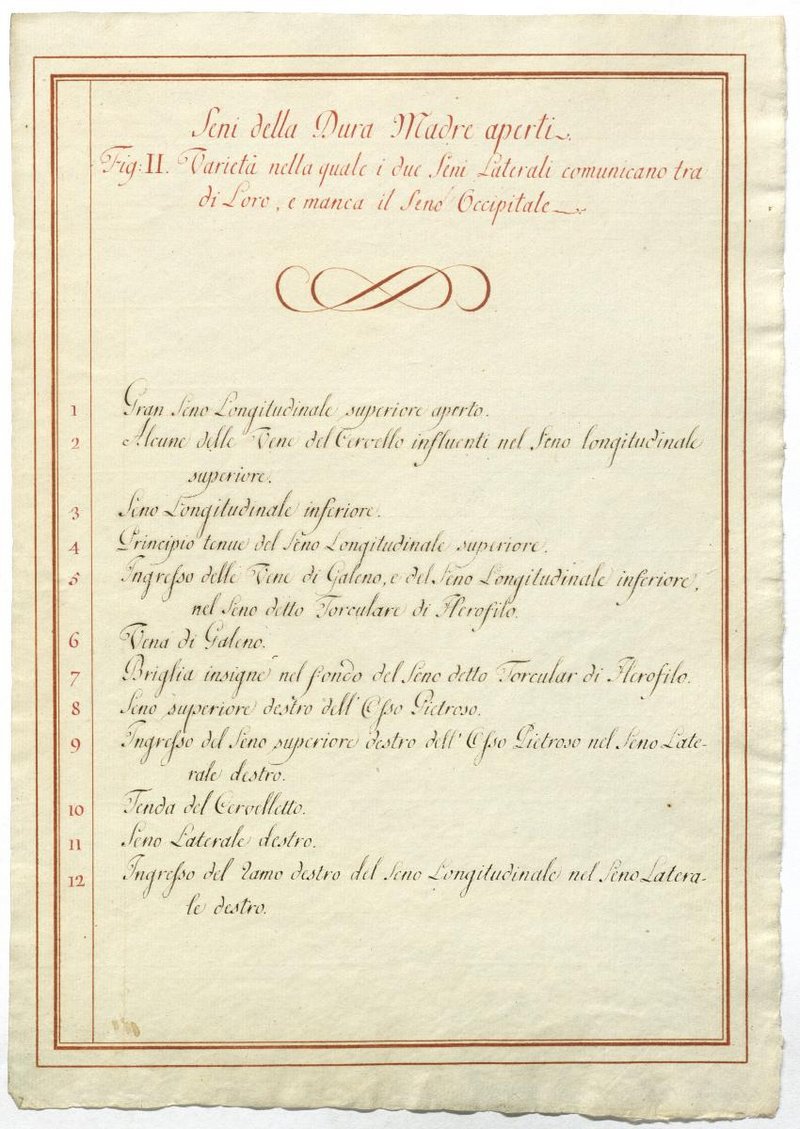 Seni della Dura Madre aperti.
Fig: II. Varietà nella quale i due Seni Laterali comunicano tra
di Loro, e manca il Seno Occipitale
1 Gran Seno Longitudinale superiore aperto.
2 Alcune delle Vene del Cervello influenti nel Seno longitudinale
superiore.
3 Seno Longitudinale inferiore.
4 Principio tenue del Seno Longitudinale superiore.
5 Ingresso delle Vene di Galeno, e del Seno Longitudinale inferiore,
nel Seno detto Torculare di Herofilo.
6 Vena di Galeno.
7 Briglia insigne nel fondo del Seno detto Torcular di Herofilo.
8 Seno superiore destro dell' Osso Pietroso.
9 Ingresso del Seno superiore destro dell' Osso Pietroso nel Seno Late-
rale destro.
10 Tenda del Cervelletto.
11 Seno Laterale destro.
12 Ingresso del Ramo destro del Seno Longitudinale nel Seno Latera-
le destro.